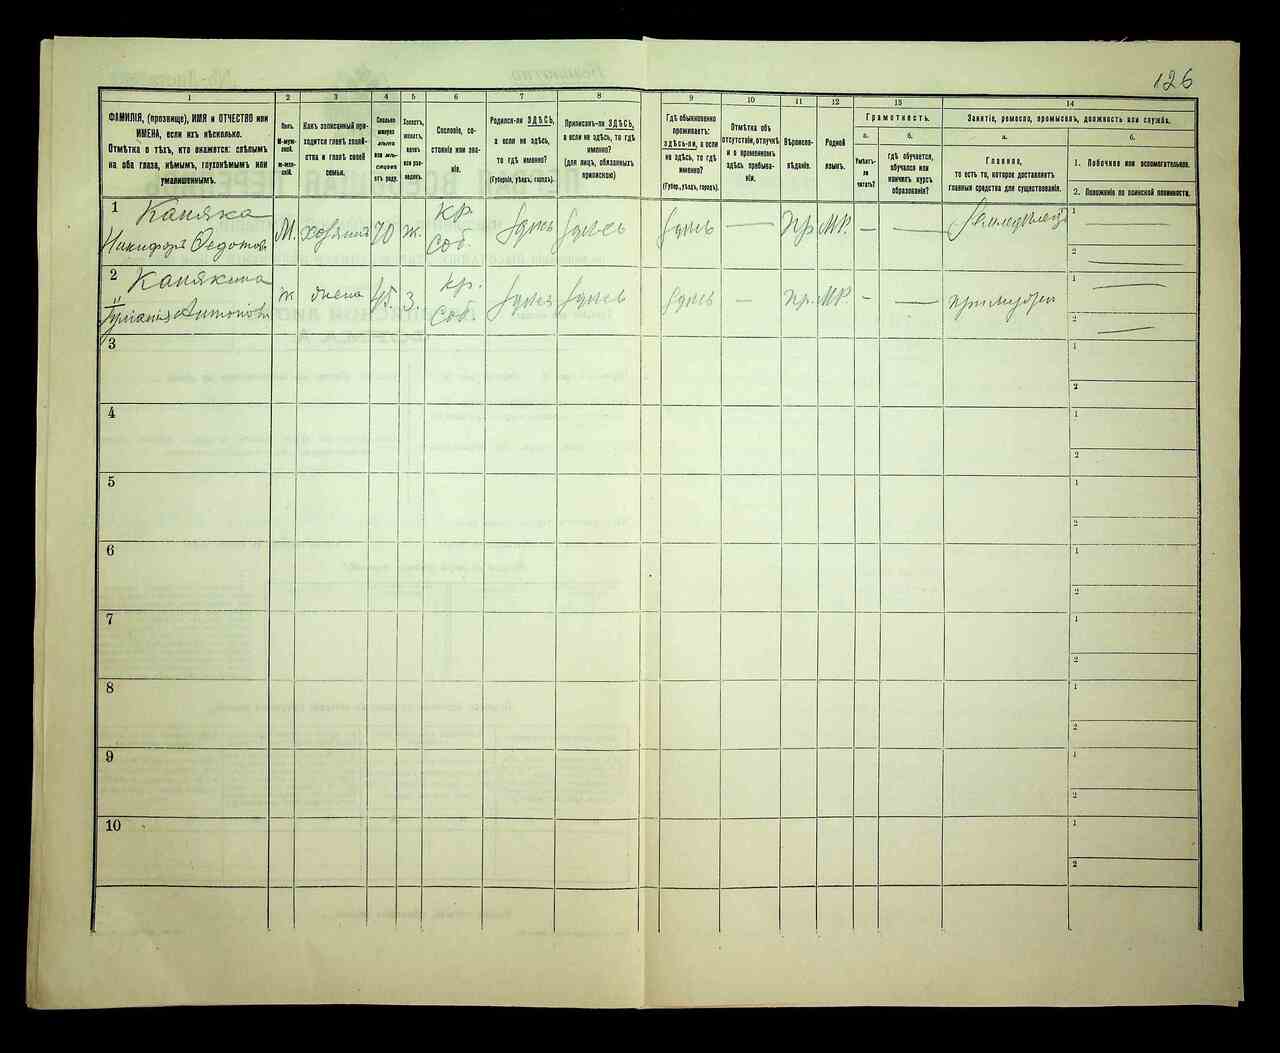 126
1
2
3
4
5
6
7
8
9
10
11
12
13
14
ФАМИЛІЯ, (прозвище), ИМЯ и ОТЧЕСТВО или
ИМЕНА, если ихъ нѣсколько.
Отмѣтка о тѣхъ, кто окажется: слѣпымъ
на оба глаза, нѣмымъ, глухонѣмымъ или
умалишеннымъ.
Полъ.
М-муж-
ской.
Ж-жен-
скій.
Какъ записанный при-
ходится главѣ хозяй-
ства и главѣ своей
семьи.
Сколько
минуло
лѣтъ
или мѣ-
сяцевъ
отъ роду.
Холостъ,
женатъ,
вдовъ
или раз-
веденъ.
Сословіе, со-
стояніе или зва-
ніе.
Родился-ли ЗДѢСЬ,
а если не здѣсь,
то гдѣ именно?
(Губернія, уѣздъ, городъ).
Приписанъ-ли ЗДѢСЬ,
а если не здѣсь, то гдѣ
именно?
(для лицъ, обязанныхъ
припискою)
Гдѣ обыкновенно
проживаетъ:
здѣсь-ли, а если
не здѣсь, то гдѣ
именно?
(Губер., уѣздъ, городъ).
Отмѣтка объ
отсутствіи, отлучкѣ
и о временномъ
здѣсь пребыва-
ніи.
Вѣроиспо-
вѣданіе.
Родной
языкъ.
Грамотность.
а.
б.
Умѣетъ-
ли
читать?
Гдѣ обучается,
обучался или
кончилъ курсъ
образованія?
Занятіе, ремесло, промыселъ, должность или служба.
а.
б.
Главное,
то есть то, которое доставляетъ
главныя средства для существованія.
1. Побочное или вспомогательное.
2. Положеніе по воинской повинности.
1
Каняка
Никифоръ Федотов.
М. хозяинъ 70 ж. кр. соб. здѣсь здѣсь здѣсь — пр МР. — — Земледѣлец 1 —
2 —
2 Канякина
Антонов.
ж жена 45 з. кр. соб. здѣсь здѣсь здѣсь — пр. МР. — — при мужѣ 1 —
2 —
3 1
2
4 1
2
5 1
2
6 1
2
7 1
2
8 1
2
9 1
2
10 1
2